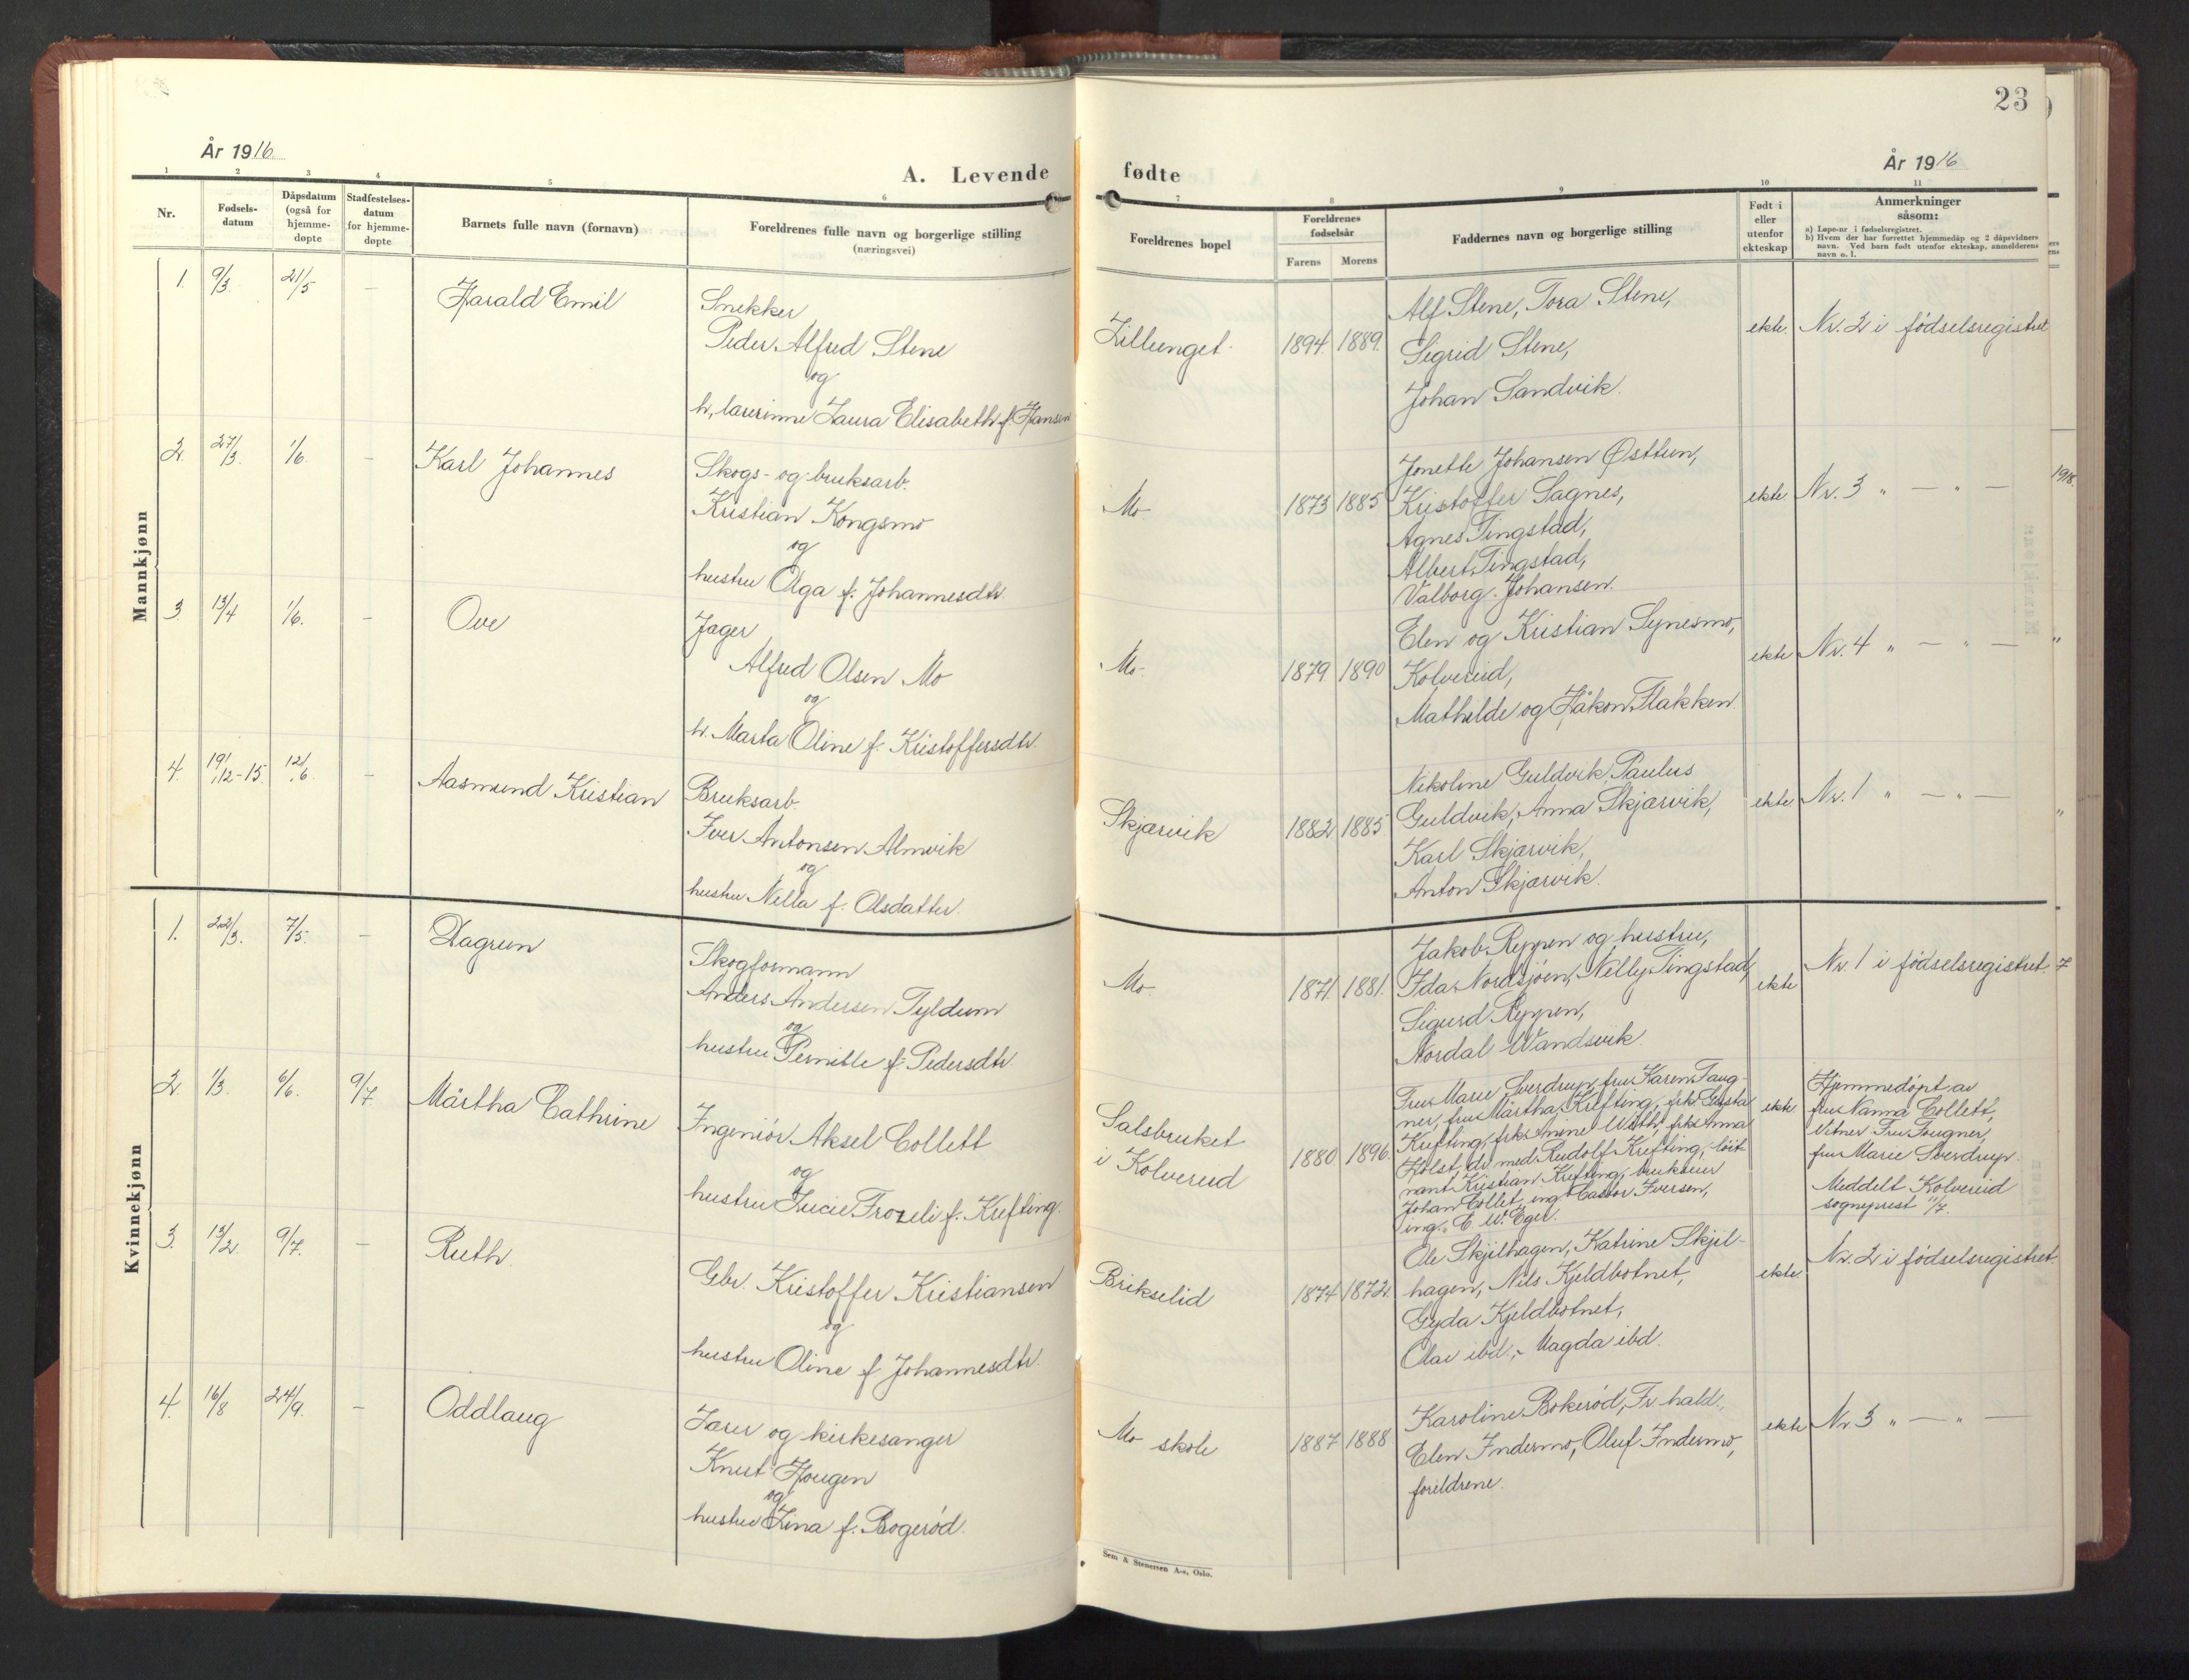 23
År 1916.
År 1916
A. Levende fødte
1 2 3 4 5 6 7 8 9 10 11
Nr.
Fødsels-
datum
Dåpsdatum
(også for
hjemme-
døpte
Stadfestelses-
datum
for hjemme-
døpte
Barnets fulle navn (fornavn)
Foreldrenes fulle navn og borgerlige stilling
(næringsvei)
Foreldrenes bopel
Foreldrenes
fødselsår
Farens Morens
Faddernes navn og borgerlige stilling
Født i
eller
utenfor
ekteskap
Anmerkninger
såsom:
a) Løpe-nr i fødselsregistret.
b) Hvem der har forrettet hjemmedåp og 2 dåpsvidners
navn. Ved barn født utenfor ekteskap, anmelderens
navn o. l.
Mannkjønn
1. 9/3. 21/5 –
Harald Emil
Snekker
Peder Alfred Stene
og
h, lærerinne Laura Elisabeth f. Hansen
1894. 1889.
Alf Stene, Tora Stene,
Sigrid Stene,
Johan Sandvik.
ekte.
Nr. 2 i fødselsregistret
2. 27/3. 1/6. –
Karl Johannes
Skogs- og bruksarb.
Kristian Kongsmo
og
hustru Olga f. Johannesdtr.
Mo.
1873 1885
Jonette Johansen Østtun,
Kristoffer Sagnes,
Agnes Tingstad,
Albert Tingstad,
Valborg Johansen.
ekte
Nr. 3 " — " —
3. 13/4 1/6. –
Ove
Jager
Alfred Olsen Mo
og
h. Marta Oline f. Kristoffersdtr.
Mo.
1879 1890
Elen og Kristian Synesmo,
Kolvereid,
Mathilde og Håkon Flakken.
ekte
Nr. 4 " — " —
4. 19/12-15. 12/6. –
Aasmund Kristian
Bruksarb.
Iver Antonsen Almvik
og
hustru Nella f. Olsdatter.
Skjærvik
1882 1885
Nikoline Guldvik, Paulus
Guldvik, Anna Skjærvik,
Karl Skjærvik,
Anton Skjærvik.
ekte
Nr. 1 " — " —
Kvinnekjønn
1. 22/3. 7/5. –
Dagrun
Skogformann
Anders Andersen Tyldum
og
hustru Pernille f. Pedersdtr.
Mo.
1871. 1881.
Jakob Reppen og hustru,
Ida Nordsjøen, Nelly Tingstad,
Sigurd Reppen,
Nordal Wandsvik.
ekte
Nr. 1 i fødselsregistret.
2. 1/3. 6/6. 9/7.
Märtha Cathrine
Ingeniør Aksel Collett
og
hustru Lucie Trozeli f. Kefting.
Salsbruket
i Kolvereid
1880 1896.
Fru Marie Sverdrup, fru Karen Faug-
ner, fru Märtha Kiefting, frk. Gusta
Kiefting, frk. Anine Wath, frk. Anna
Holst, dr. med. Rudolf Kiefting, løit-
nant Kristian Kiefting, brukseier
Johan Collet, ing. Castor Iversen,
ing. E. W. Eger.
ekte
Hjemmedøpt av
fru Nanna Collett,
Vitner Fru Fougner,
fru Marie Sverdrup.
Meddelt Kolvereid
sogneprest 11/7.
3. 13/2. 9/7. –
Ruth.
Gbr. Kristoffer Kristiansen
og
hustru Oline f. Johannesdtr.
Brikselid
1874 1872.
Ole Skjilhagen, Katrine Skjil-
hagen, Nils Kjeldbotnet,
Gyda Kjeldbotnet,
Olav ibd, - Magda ibd.
ekte.
Nr. 2 i fødselsregistret.
4. 16/8 24/9. –
Oddlaug
Lærer og kirkesanger
Knut Hougen
og
hustru Lina f. Bogerød.
Mo skole
1887 1888
Karoline Bokerød, Fr.hald.,
Elen Indermo, Oluf Indermo,
foreldrene.
ekte
Nr. 3 " — " —
Sem & Stenersen A-s, Oslo.
1918.